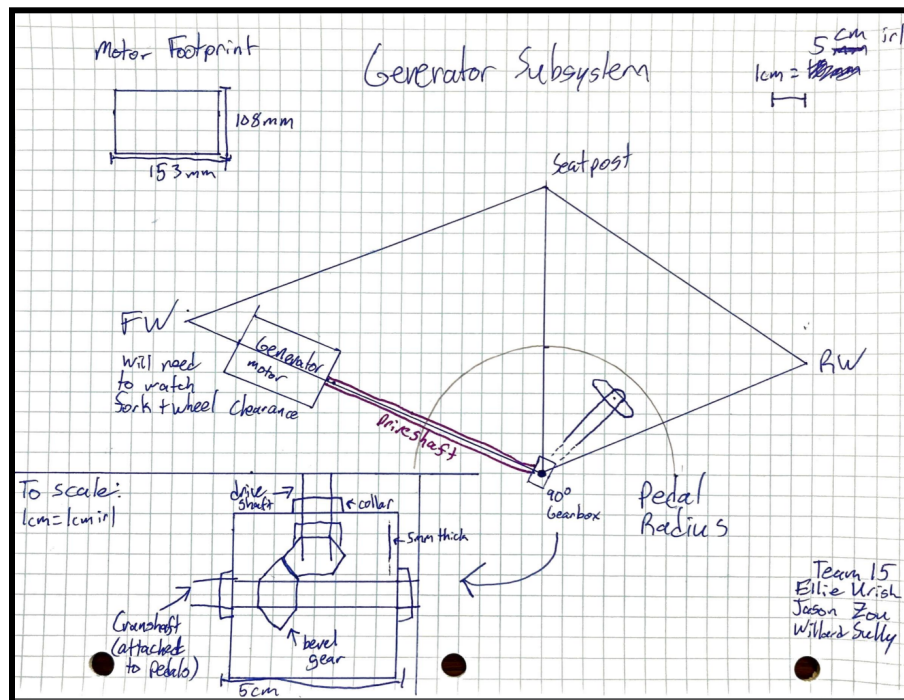 Motor Footprint
108mm
153mm
Generator Subsystem
5 cm irl
1cm =
Seatpost
FW
will need
to watch
fork + wheel clearance
Generator
motor
Driveshaft
RW
90°
Gearbox
Pedal
Radius
To scale:
1cm=1cm irl
drive
shaft
collar
5mm thick
Crankshaft
(attached
to pedals)
bevel
gear
5cm
Team 15
Ellie Urish
Jason Zou
Willard Sully